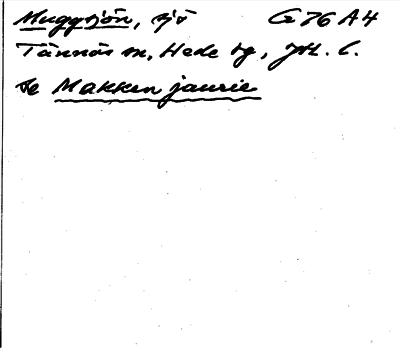 Muggsjön, sjö G 76 A4
Tännäs sn, Hede tg, Jtl. l.
Se Makken jaurie